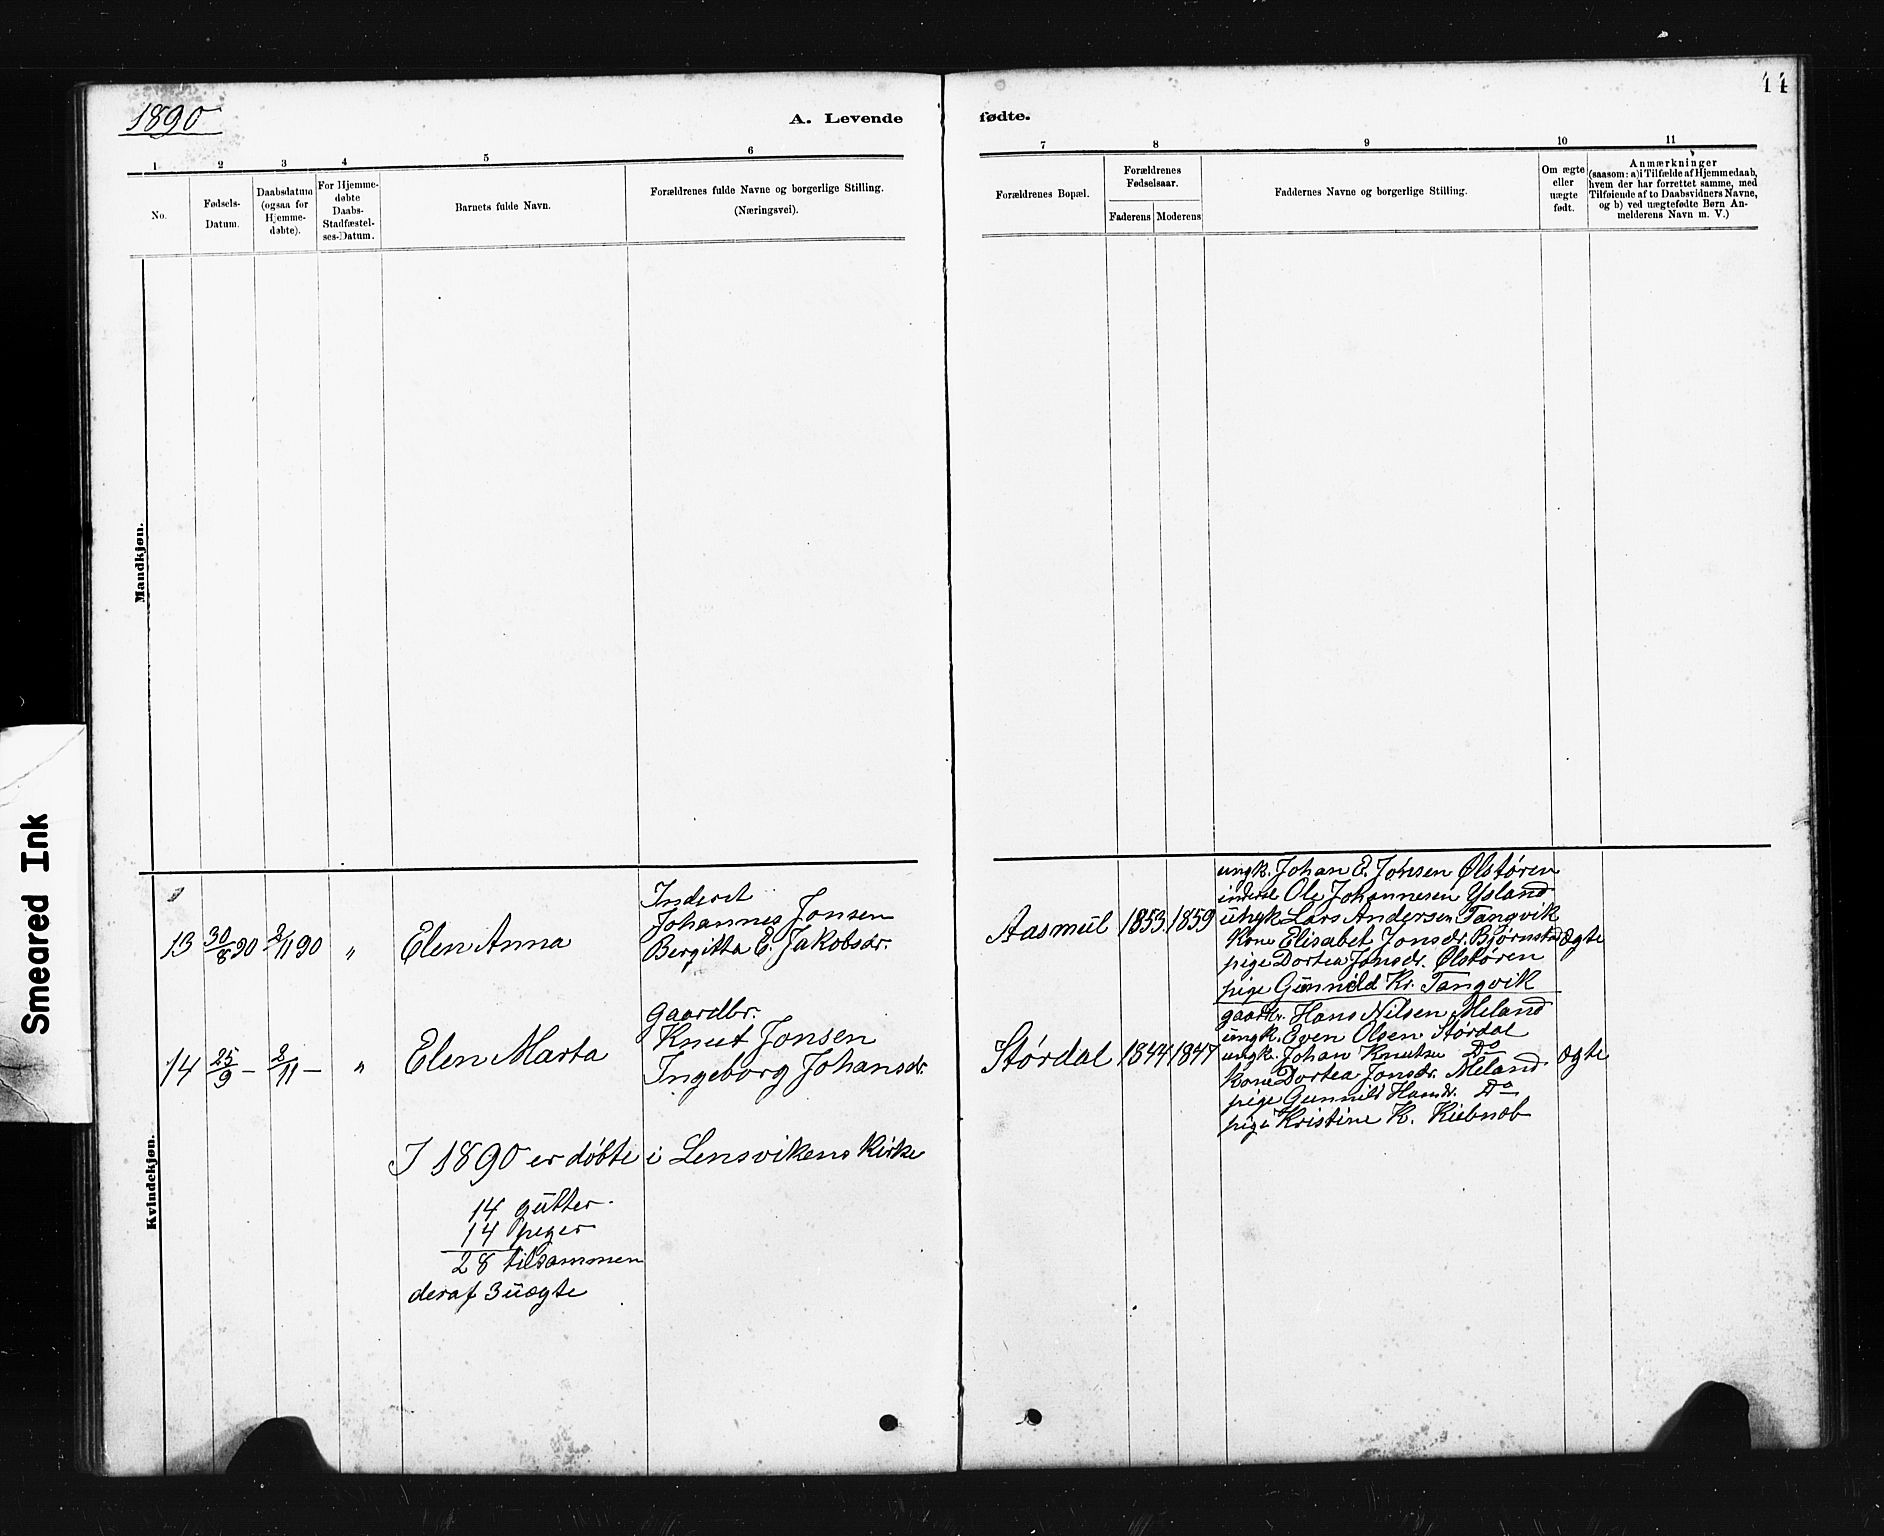 11
1890
A. Levende fødte.
1 2 3 4 5 6 7 8 9 10 11
No.
Fødsels-
Datum.
Daabsdatum
(ogsaa for
Hjemme-
døbte).
For Hjemme-
døbte
Daabs-
Stadfæstel-
ses-Datum.
Barnets fulde Navn.
Forældrenes fulde Navne og borgerlige Stilling.
(Næringsvei).
Forældrenes Bopæl.
Forældrenes
Fødselsaar.
Faderens
Moderens
Faddernes Navne og borgerlige Stilling.
Om ægte
eller
uægte
født.
Anmærkninger
(saasom: a) i Tilfælde af Hjemmedaab,
hvem der har forrettet samme, med
Tilføiende af to Daabsvidners Navne,
og b) ved uægtefødte Børn An-
melderens Navn m. V.)
Mandkjøn.
Kvindekjøn.
13 30/8 90 2/11 90 " Elen Anna
Inderst
Johannes Jonsen
Bergitta E. Jakobsdr.
Aasmul 1853. 1859
ungk. Johan E. Jonsen Ølstøren
inderst Ole Johannesen Ysland
ungk Lars Andersen Tangvik
Kone Elisabet Jonsdr. Bjørnstad
pige Dortea Jonsdr. Ølstøren
pige Gunnild Kr. Tangvik
ægte
14 25/9 - 2/11 - " Elen Marta
Gaardbr.
Knut Jonsen
Ingeborg Johansdr.
Størdal 1844 1847
gaardbr. Hans Nilsen Meland
ungk. Even Olsen Størdal
ungk. Johan Knutsen Do
kone Dortea Jonsdr. Meland
pige Gunnild Hansdr. Do
pige Kristine K.
ægte
I 1890 er døbte i Lensvikens Kirke
14 gutter.
14 piger
28 tilsammen
deraf 3 uægte
Smeared Ink